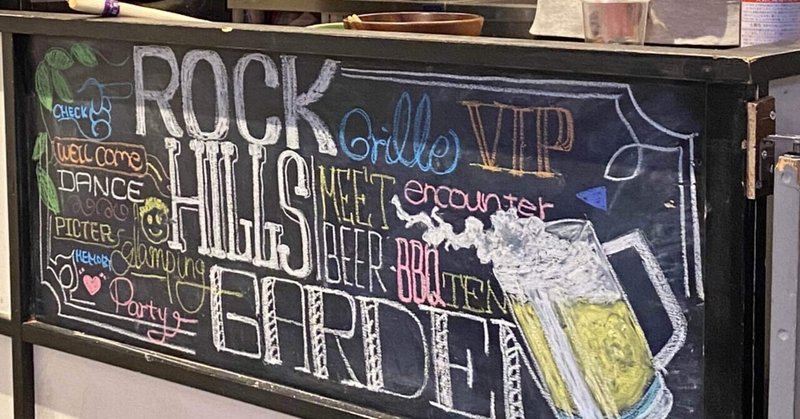 ROCK
HILLS
GARDEN
Grille
VIP
MEET
encounter
BEER
BBQ
TEN
CHECK
WellCome
DANCE
PICTER
MEMORY
glamping
Party